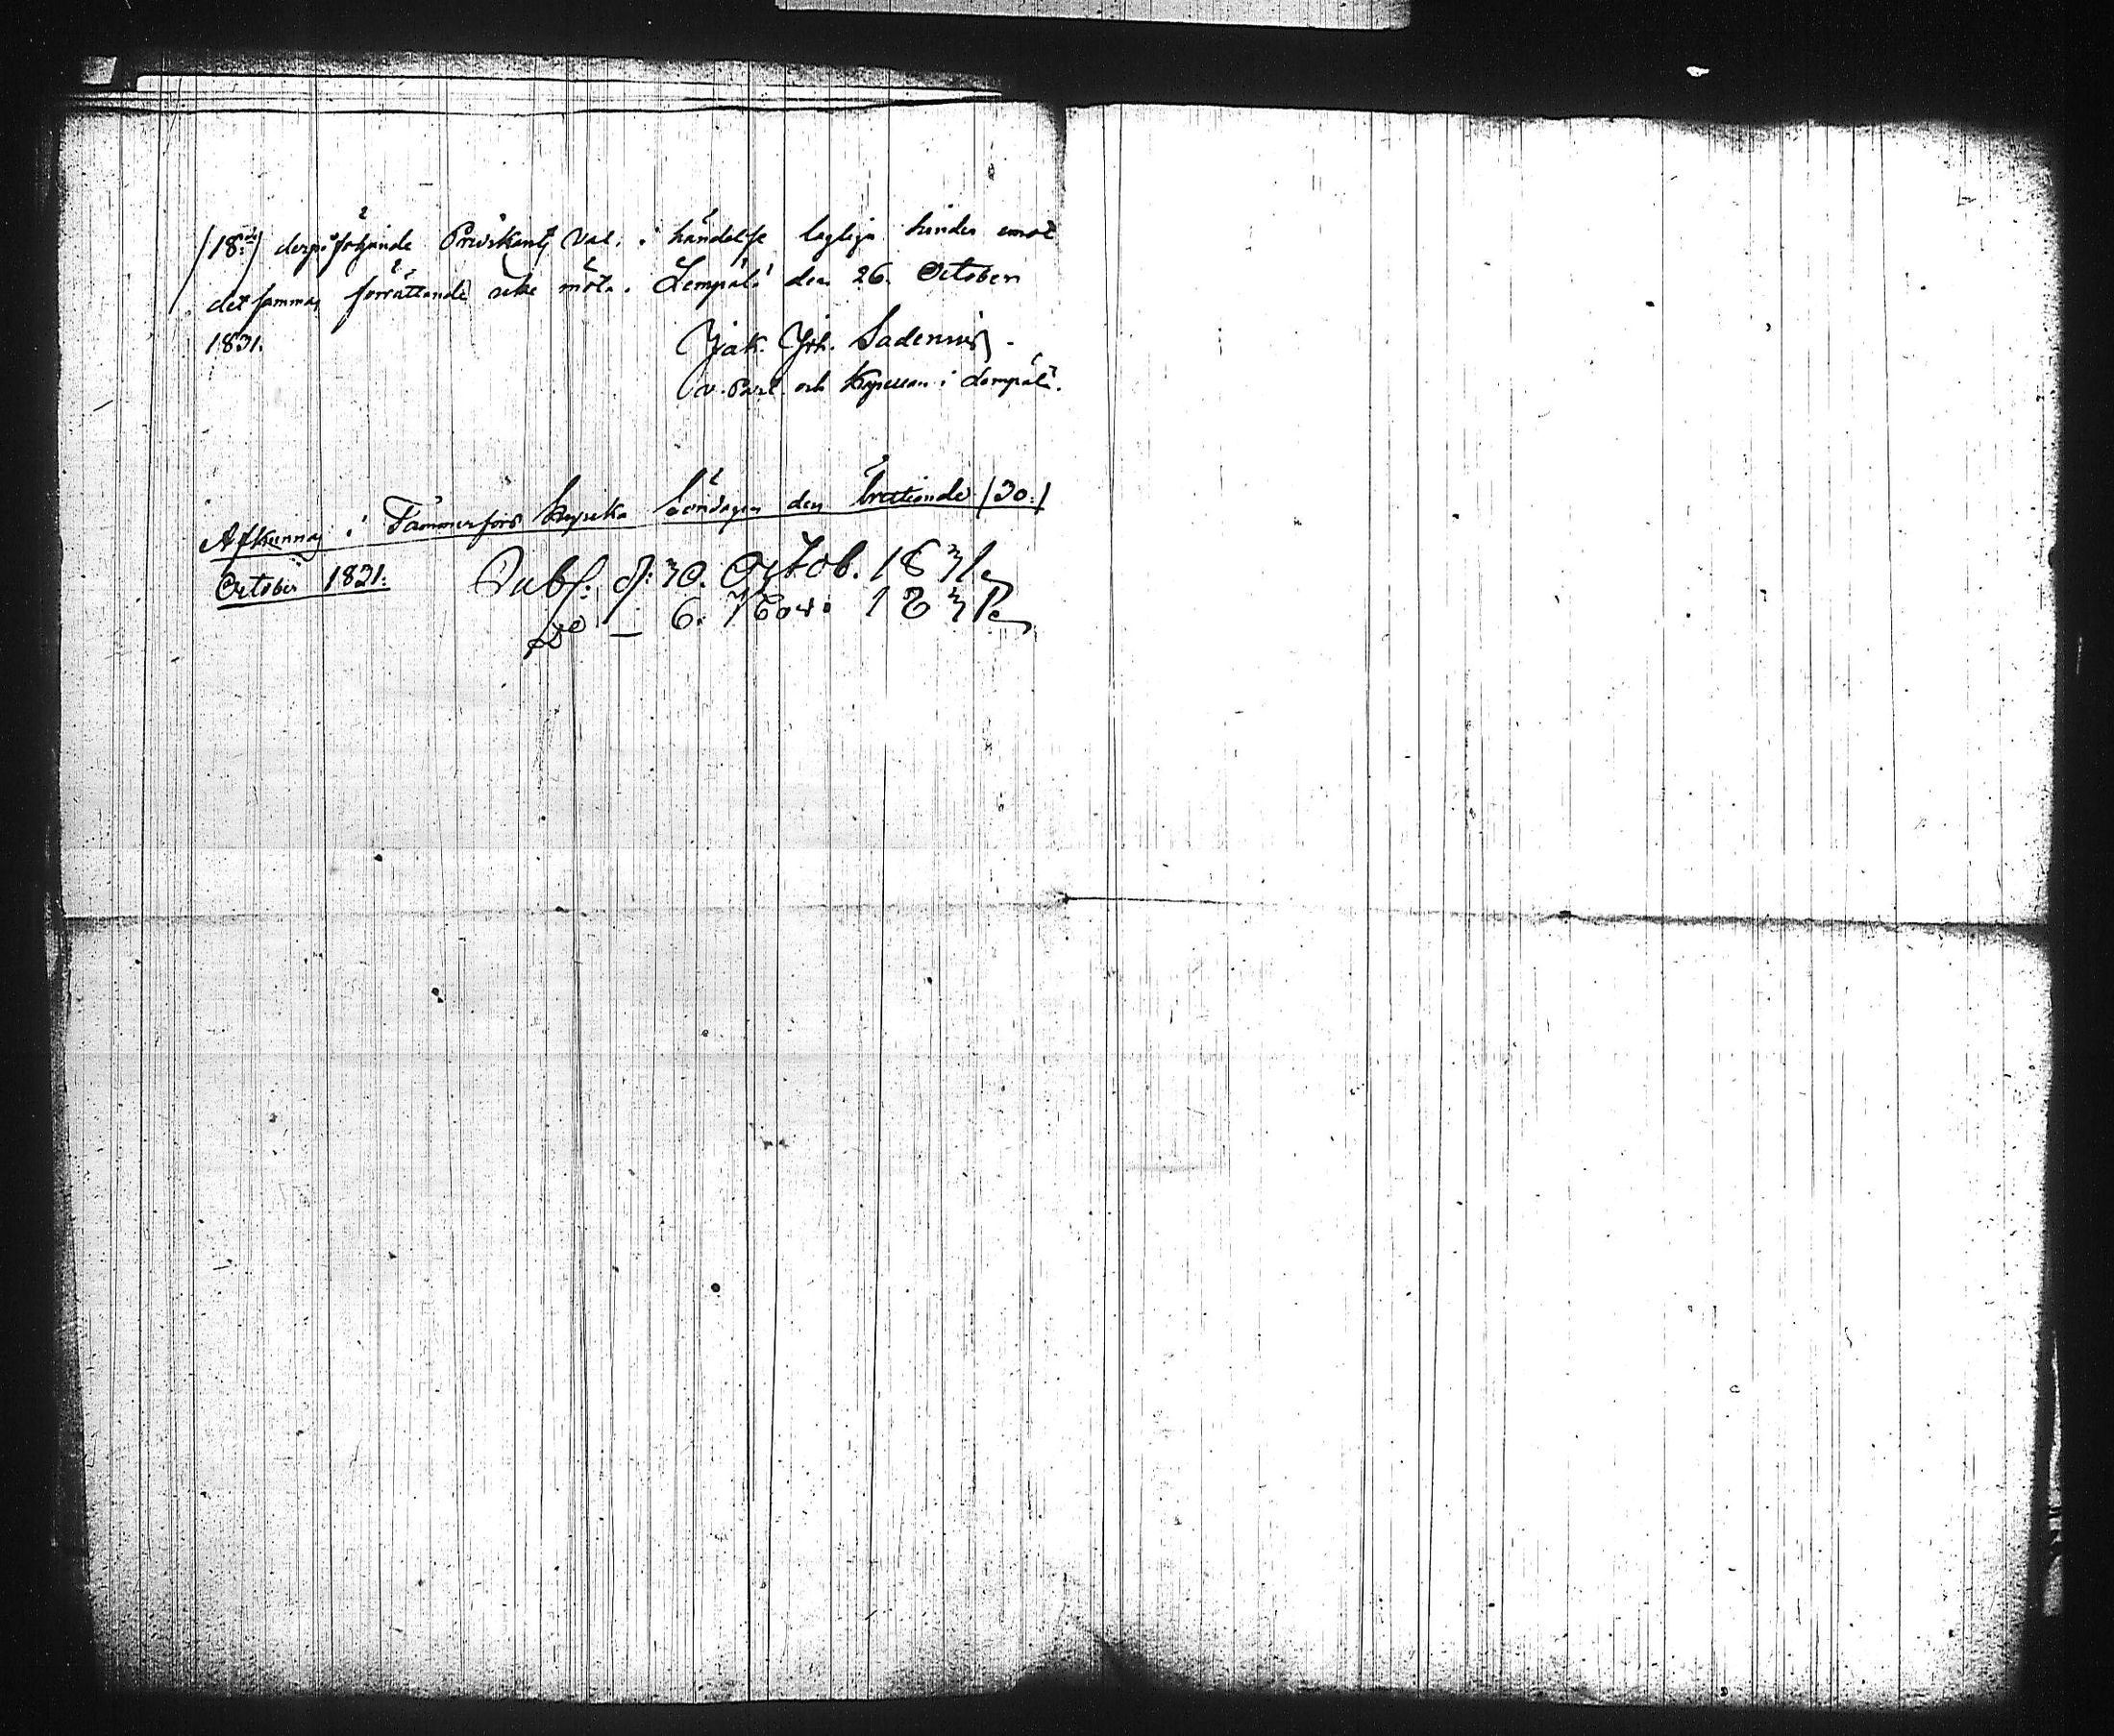 (18de) derpåföljande Predikants Val, i händelse lagliga hinder emot
det sammas förrättande icke möta. Lempälä den 26. October
1831.
Jak. Joh. Sadenius
v. Past. och Kapellan i Lempälä.
Afkunnas i Tammerfors Kyrka Söndagen den trettionde (30:)
October 1831.
Publ. d: 30. Octob. 1831.
D:o — 6. Nov. 1831.